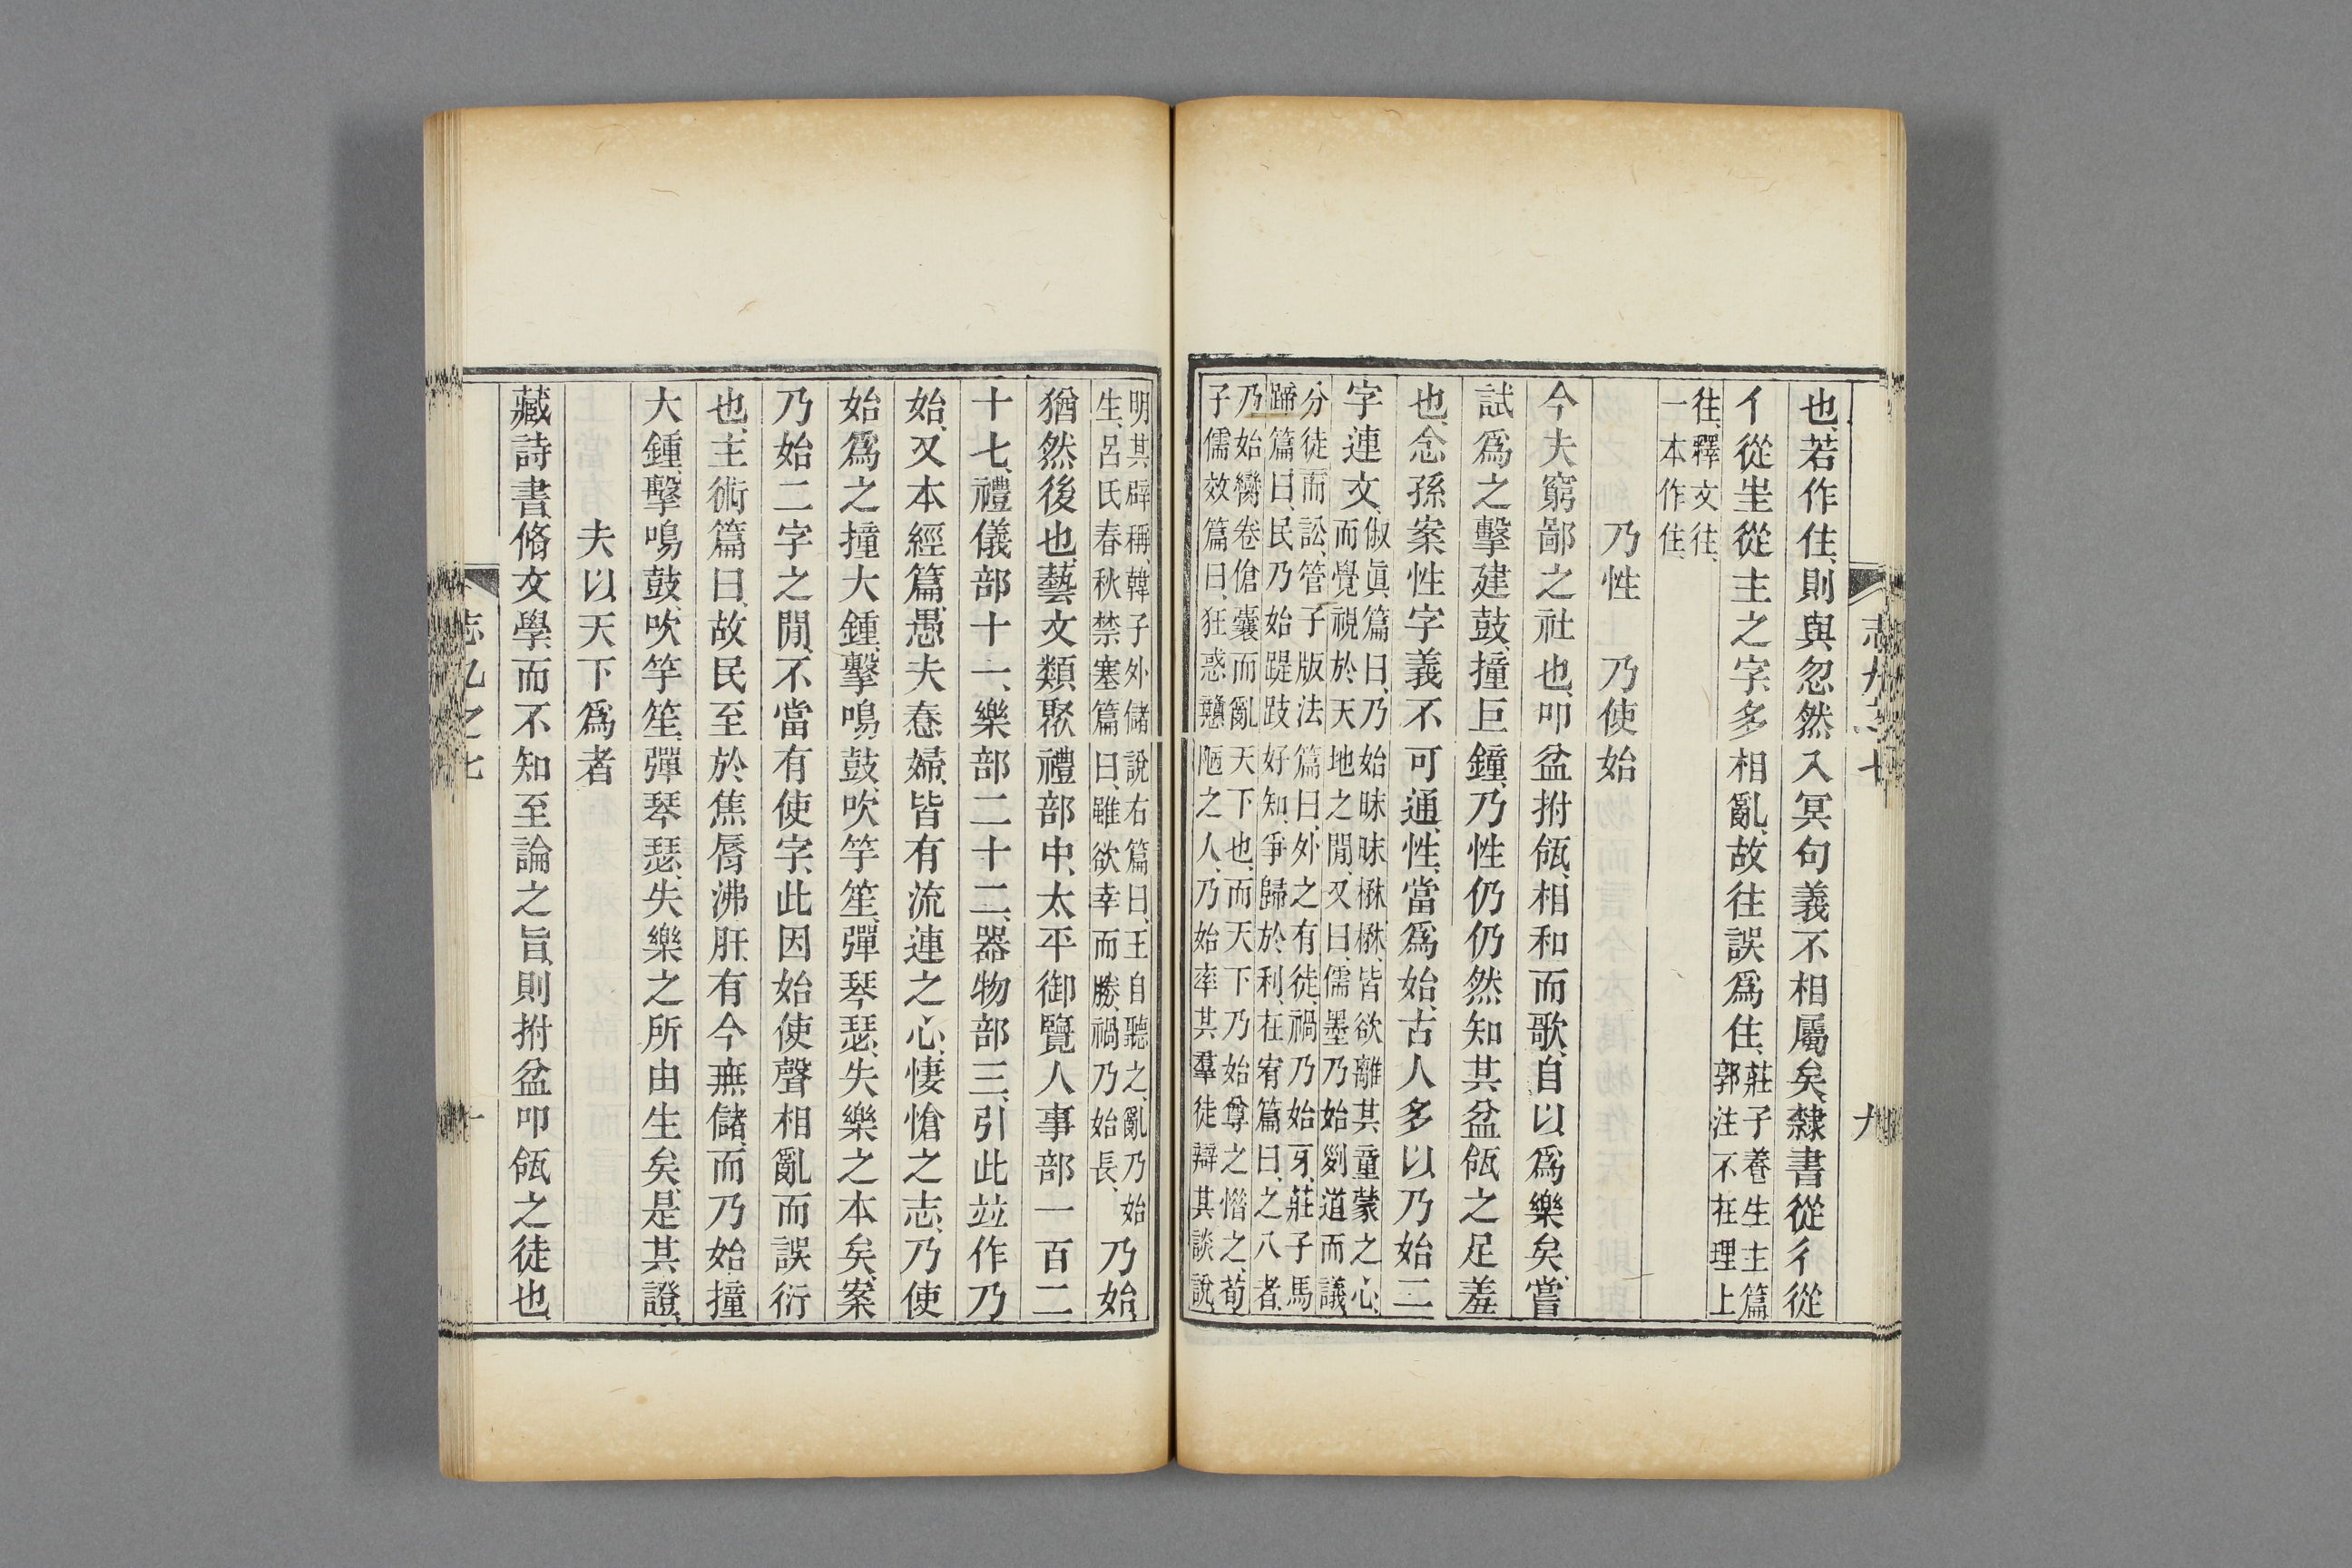 志九之七
九
也、若作住、則與忽然入冥句義不相屬矣、隸書從彳從
亻從㞷從主之字、多相亂、故往誤爲住、莊子養生主篇
郭注不在理上
往、釋文往、
一本作住、
乃性 乃使始
今夫窮鄙之社也、叩盆拊瓴、相和而歌、自以爲樂矣、嘗
試爲之擊建鼓、撞巨鐘、乃性仍仍然知其盆瓴之足羞
也、念孫案性字義不可通、性、當爲始、古人多以乃始二
字連文、俶眞篇曰、乃始昧昧楙楙、皆欲離其童蒙之心、
而覺視於天地之閒、又曰、儒墨乃始列道而議、
分徒而訟、管子版法篇曰、外之有徒、禍乃始牙、莊子馬
蹏篇曰、民乃始踶跂好知、爭歸於利、在宥篇曰、之八者、
乃始臠卷傖囊而亂天下也、而天下乃始尊之惜之、荀
子儒效篇曰、狂惑戇陋之人、乃始率其羣徒、辯其談說、
明其辟稱、韓子外儲說右篇曰、王自聽之、亂乃始
生、呂氏春秋禁塞篇曰、雖欲幸而勝、禍乃始長、
乃始、
猶然後也、藝文類聚禮部中、太平御覽人事部一百二
十七、禮儀部十一、樂部二十二、器物部三、引此竝作乃
始、又本經篇、愚夫惷婦、皆有流連之心、悽愴之志、乃使
始爲之撞大鍾、擊鳴鼓、吹竽笙、彈琴瑟、失樂之本矣、案
乃始二字之閒、不當有使字、此因始使聲相亂而誤衍
也、主術篇曰、故民至於焦脣沸肝、有今無儲、而乃始撞
大鍾、擊鳴鼓、吹竽笙、彈琴瑟、失樂之所由生矣、是其證、
夫以天下爲者
藏詩書、脩文學、而不知至論之旨、則拊盆叩瓴之徒也、
志九之七
十